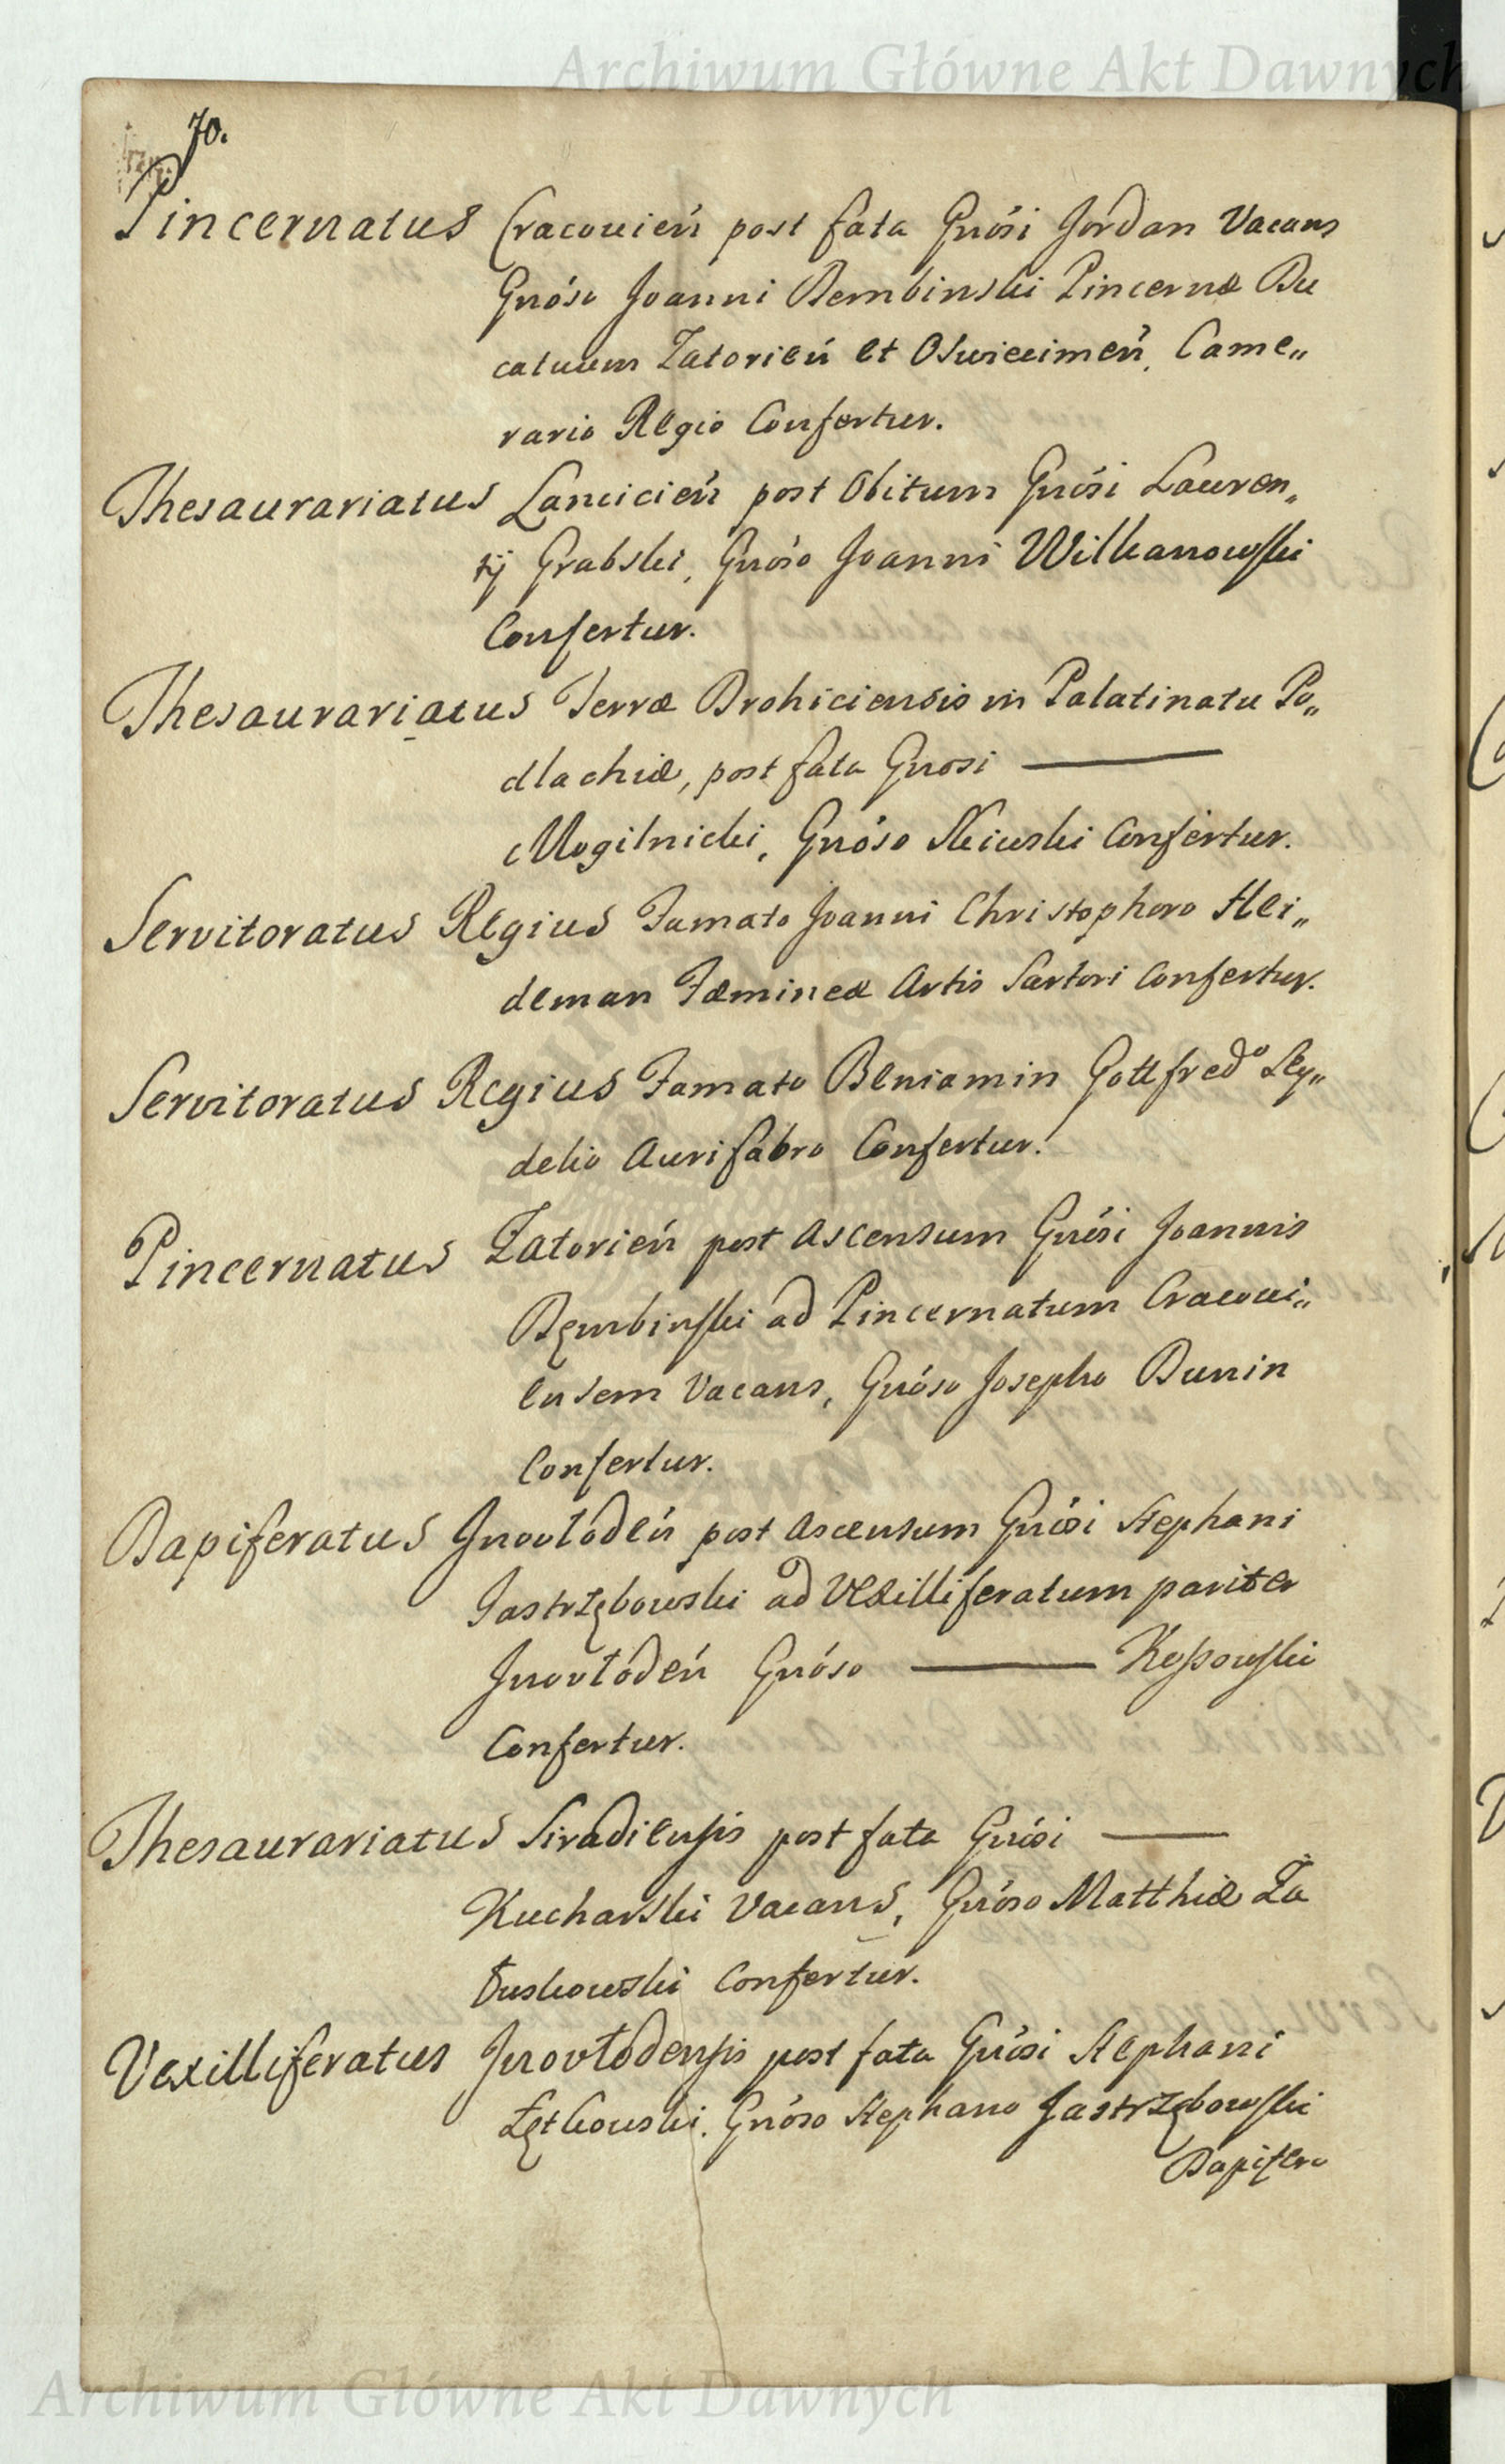 Archiwum Główne Akt Dawnych
70.
Pincernatus Cracouień post fata Gnósi Jordan Vacans
Gnóso Joanni Bembinski Pincernæ Du
catuum Zatorień et Oswiecimeń, Came„
rario Regio Confertur.
Thesaurariatus Lancicień post Obitum Gnósi Lauren„
tij Grabski, Gnóso Joanni Wilkanowski
Confertur.
Thesaurariatus Terræ Drohiciensis in Palatinatu Po„
dlachiæ, post fata Gnosi ———
Mogilnicki, Gnóso Skiwski Confertur.
Servitoratus Regius Famato Joanni Christophoro Hei„
deman Fæmineæ Artis Sartori Confertur.
Servitoratus Regius Famato Beniamin Gottfredo Sey„
delio Aurifabro Confertur.
Pincernatus Zatorień post Ascensum Gnósi Joannis
Bęmbinski ad Pincernatum Cracoui„
ensem Vacans, Gnóso Josepho Dunin
Confertur.
Dapiferatus Jnovłodeń post Ascensum Gnósi Stephani
Jastrzębowski ad Vexilliferatum pariter
Jnovłodeń Gnóso ——— Kossowski
Confertur.
Thesaurariatus Siradiensis post fata Gnósi ———
Kucharski Vacans, Gnóso Matthiæ Za
łuskowski Confertur.
Vexilliferatus Jnovłodensis post fata Gnósi Stephani
Łętkowski. Gnóso Stephano Jastrzębowski
Dapifero
Archiwum Główne Akt Dawnych